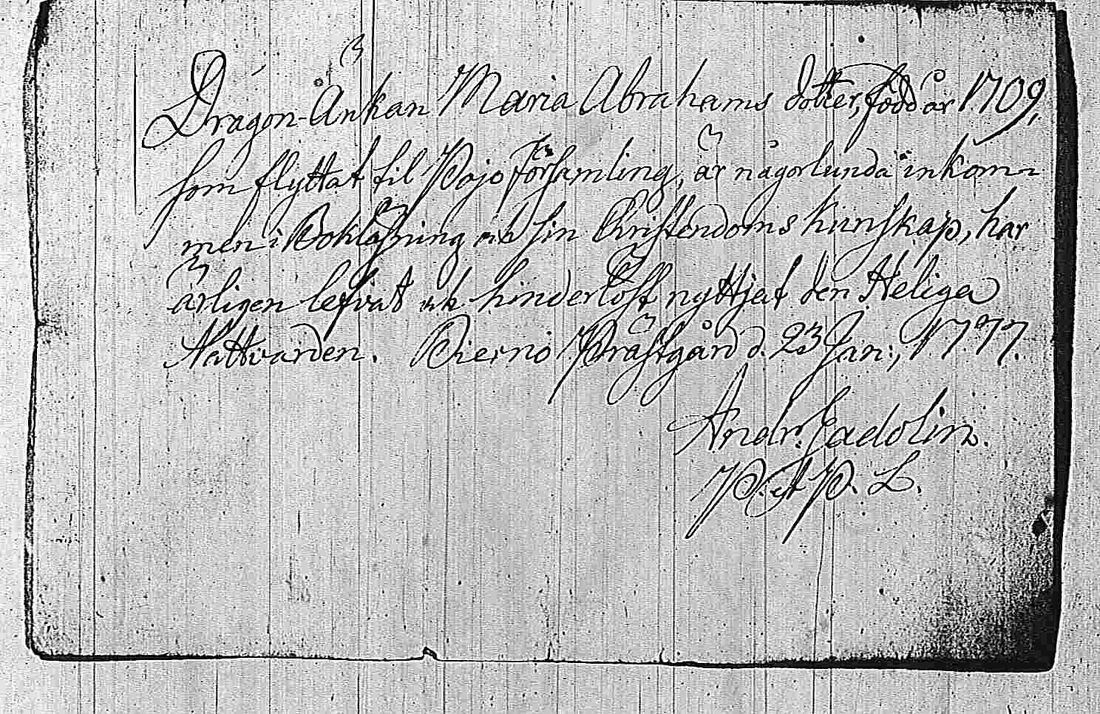 Dragon-Änkan Maria Abrahams dotter, född år 1709,
som flyttat til Pojo församling, är någorlunda inkom-
men i Bokläsning och sin Kristendoms kunskap, har
ärligen lefvat och hinderlöst nyttjat den Heliga
Nattvarden. Bierno Prästgård d. 23 Jan:, 1777.
Andr. Gadolin.
P. et P. L.